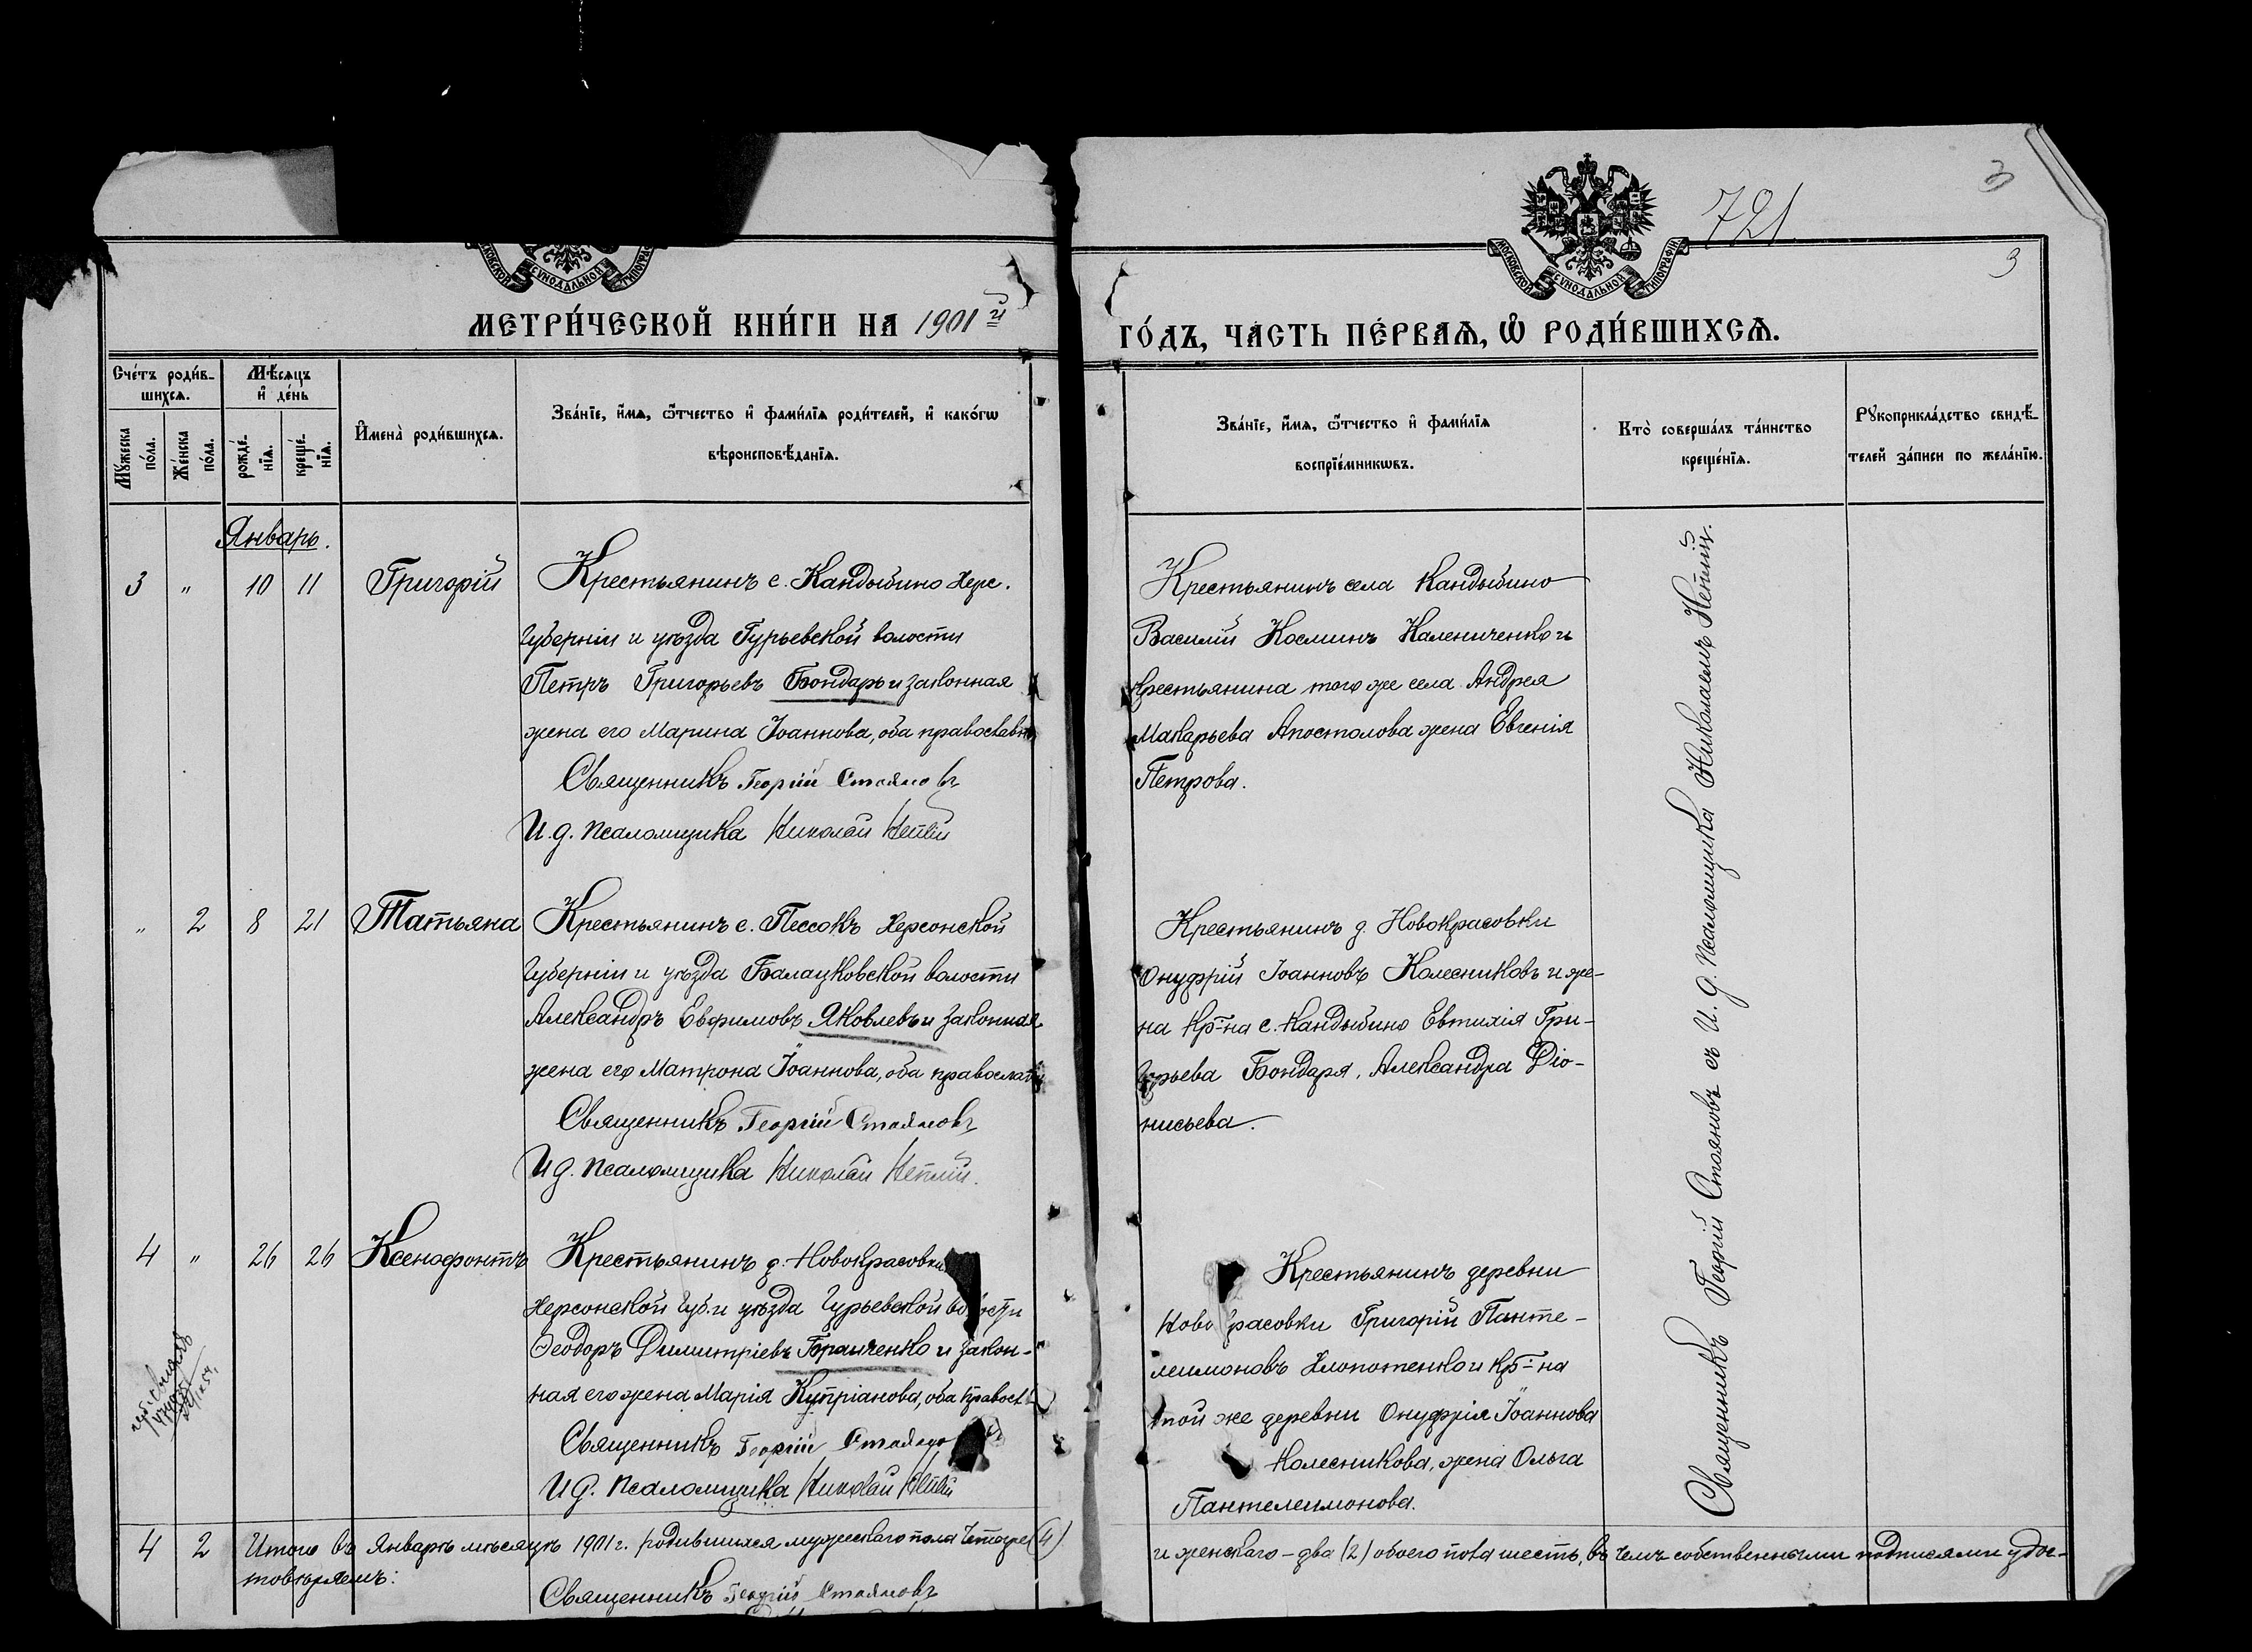 МОСКОВСКОЙ СѴНОДАЛЬНОЙ ТИПОГРАФІИ
721
3
3
МЕТРИ́ЧЕСКОЙ КНИ́ГИ НА 1901й
ГО́ДЪ, ЧА́СТЬ ПЕ́РВАѦ, Ѡ҆ РОДИ́ВШИХСѦ.
Сче́тъ роди́в-
шихсѧ.
Мѣ́сяцъ
и҆ де́нь
Мꙋ́жеска
по́ла.
Же́нска
по́ла.
рожде́-
нїѧ.
креще́-
нїѧ.
И҆мена̀ роди́вшихсѧ.
Зва́нїе, и҆́мѧ, ѻ҆́тчество и҆ фами́лїѧ роди́телей, и҆ како́гѡ
вѣроисповѣ́данїѧ.
Зва́нїе, и҆́мѧ, ѻ҆́тчество и҆ фами́лїѧ
воспрїе́мникѡвъ.
Кто̀ соверша́лъ та́инство
креще́нїѧ.
Рꙋкоприкла́дство свидѣ́-
телей за́писи по жела́нїю.
Январь.
3 " 10 11 Григорій
Крестьянинъ с. Кандыбино Херс.
губерніи и уѣзда Гурьевской волости
Петръ Григорьевъ Бондарь и законная
жена его Марина Іоаннова, оба православн
Священникъ Георгій Стояновъ
И. д. псаломщика Николай
Крестьянинъ села Кандыбино
Василій Косминъ Калениченко и
крестьянина того же села Андрея
Макарьева Апостолова жена Евгенія
Петрова.
" 2 8 21 Татьяна
Крестьянинъ с. Пессокъ Херсонской
губерніи и уѣзда Балацковской волости
Александръ Евфимовъ Яковлевъ и законная
жена его Матрона Іоаннова, оба православн
Священникъ Георгій Стояновъ
И д. псаломщика Николай
Крестьянинъ д. Новокрасовки
Онуфрій Іоанновъ Колесниковъ и же-
на кр-на с. Кандыбино Евтихія Гри-
горьева Бондаря, Александра Діо-
нисьева.
4 " 26 26 Ксенофонтъ
Крестьянинъ д. Новокрасовки
Херсонской губ. и уѣзда Гурьевской волости
Ѳеодоръ Димитріевъ Бранченко и закон-
ная его жена Марія Купріанова, оба правосл
Священникъ Георгій Стоянов
И д. псаломщика Николай
Крестьянинъ деревни
Ново расовки Григорій Панте-
леимоновъ Хлопотенко и кр-на
той же деревни Онуфрія Іоаннова
Колесникова, жена Ольга
Пантелеимонова.
Священникъ Георгій Стояновъ съ И. д. псаломщика Николаемъ
4 2 Итого въ Январѣ мѣсяцѣ 1901 г. родившихся мужескаго пола четыре (4)
и женскаго – два (2) обоего пола шесть, въ чемъ собственными подписями удос-
товѣряемъ:
Священникъ Георгій Стояновъ